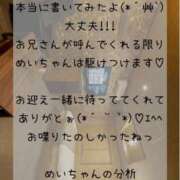 本当に書いてみたよ(*´艸`)
大丈夫!!!
お兄さんが呼んでくれる限り
めいちゃんは駆けつけます♡
お迎え一緒に待っててくれて
ありがとぉ(*ˊ ˋ*)♡
お喋りたのしかったねっ
めいちゃんの分析